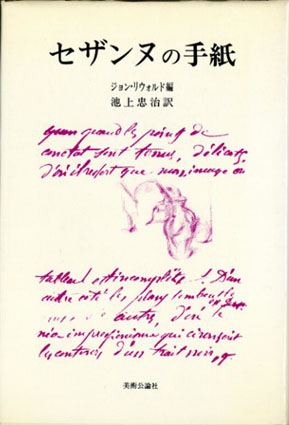 セザンヌの手紙
ジョン・リウォルド編
池上忠治訳
quand les points de
contact sont tenus, délicats,
d'où il ressort que mon image ou
tableau est incomplète. D'un
autre côté les plans tombent
autre, d'où le
néo impressionisme qui circonscrit
les contours, d'un trait noir,
美術公論社